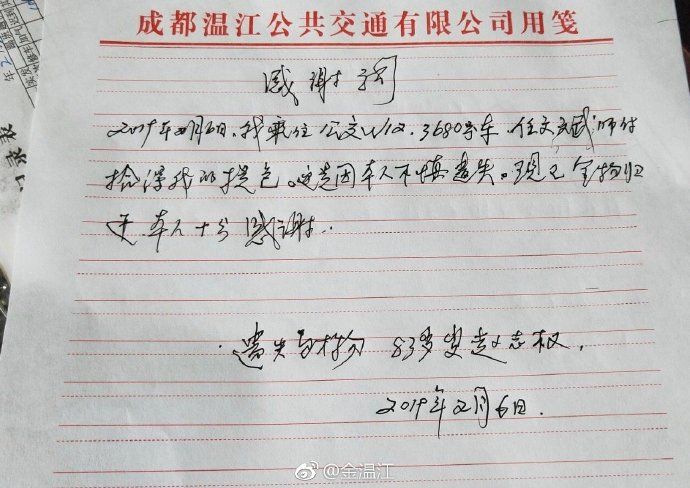 成都温江公共交通有限公司用笺
感谢词
2019年2月6日.我乘住公交W12.3680号车.任文武师付
捡得我的提包。这是因本人不慎遗失。现已全物归
还.本人十分感谢.
遗失 83多岁赵志权.
2019年2月6日.
@金温江